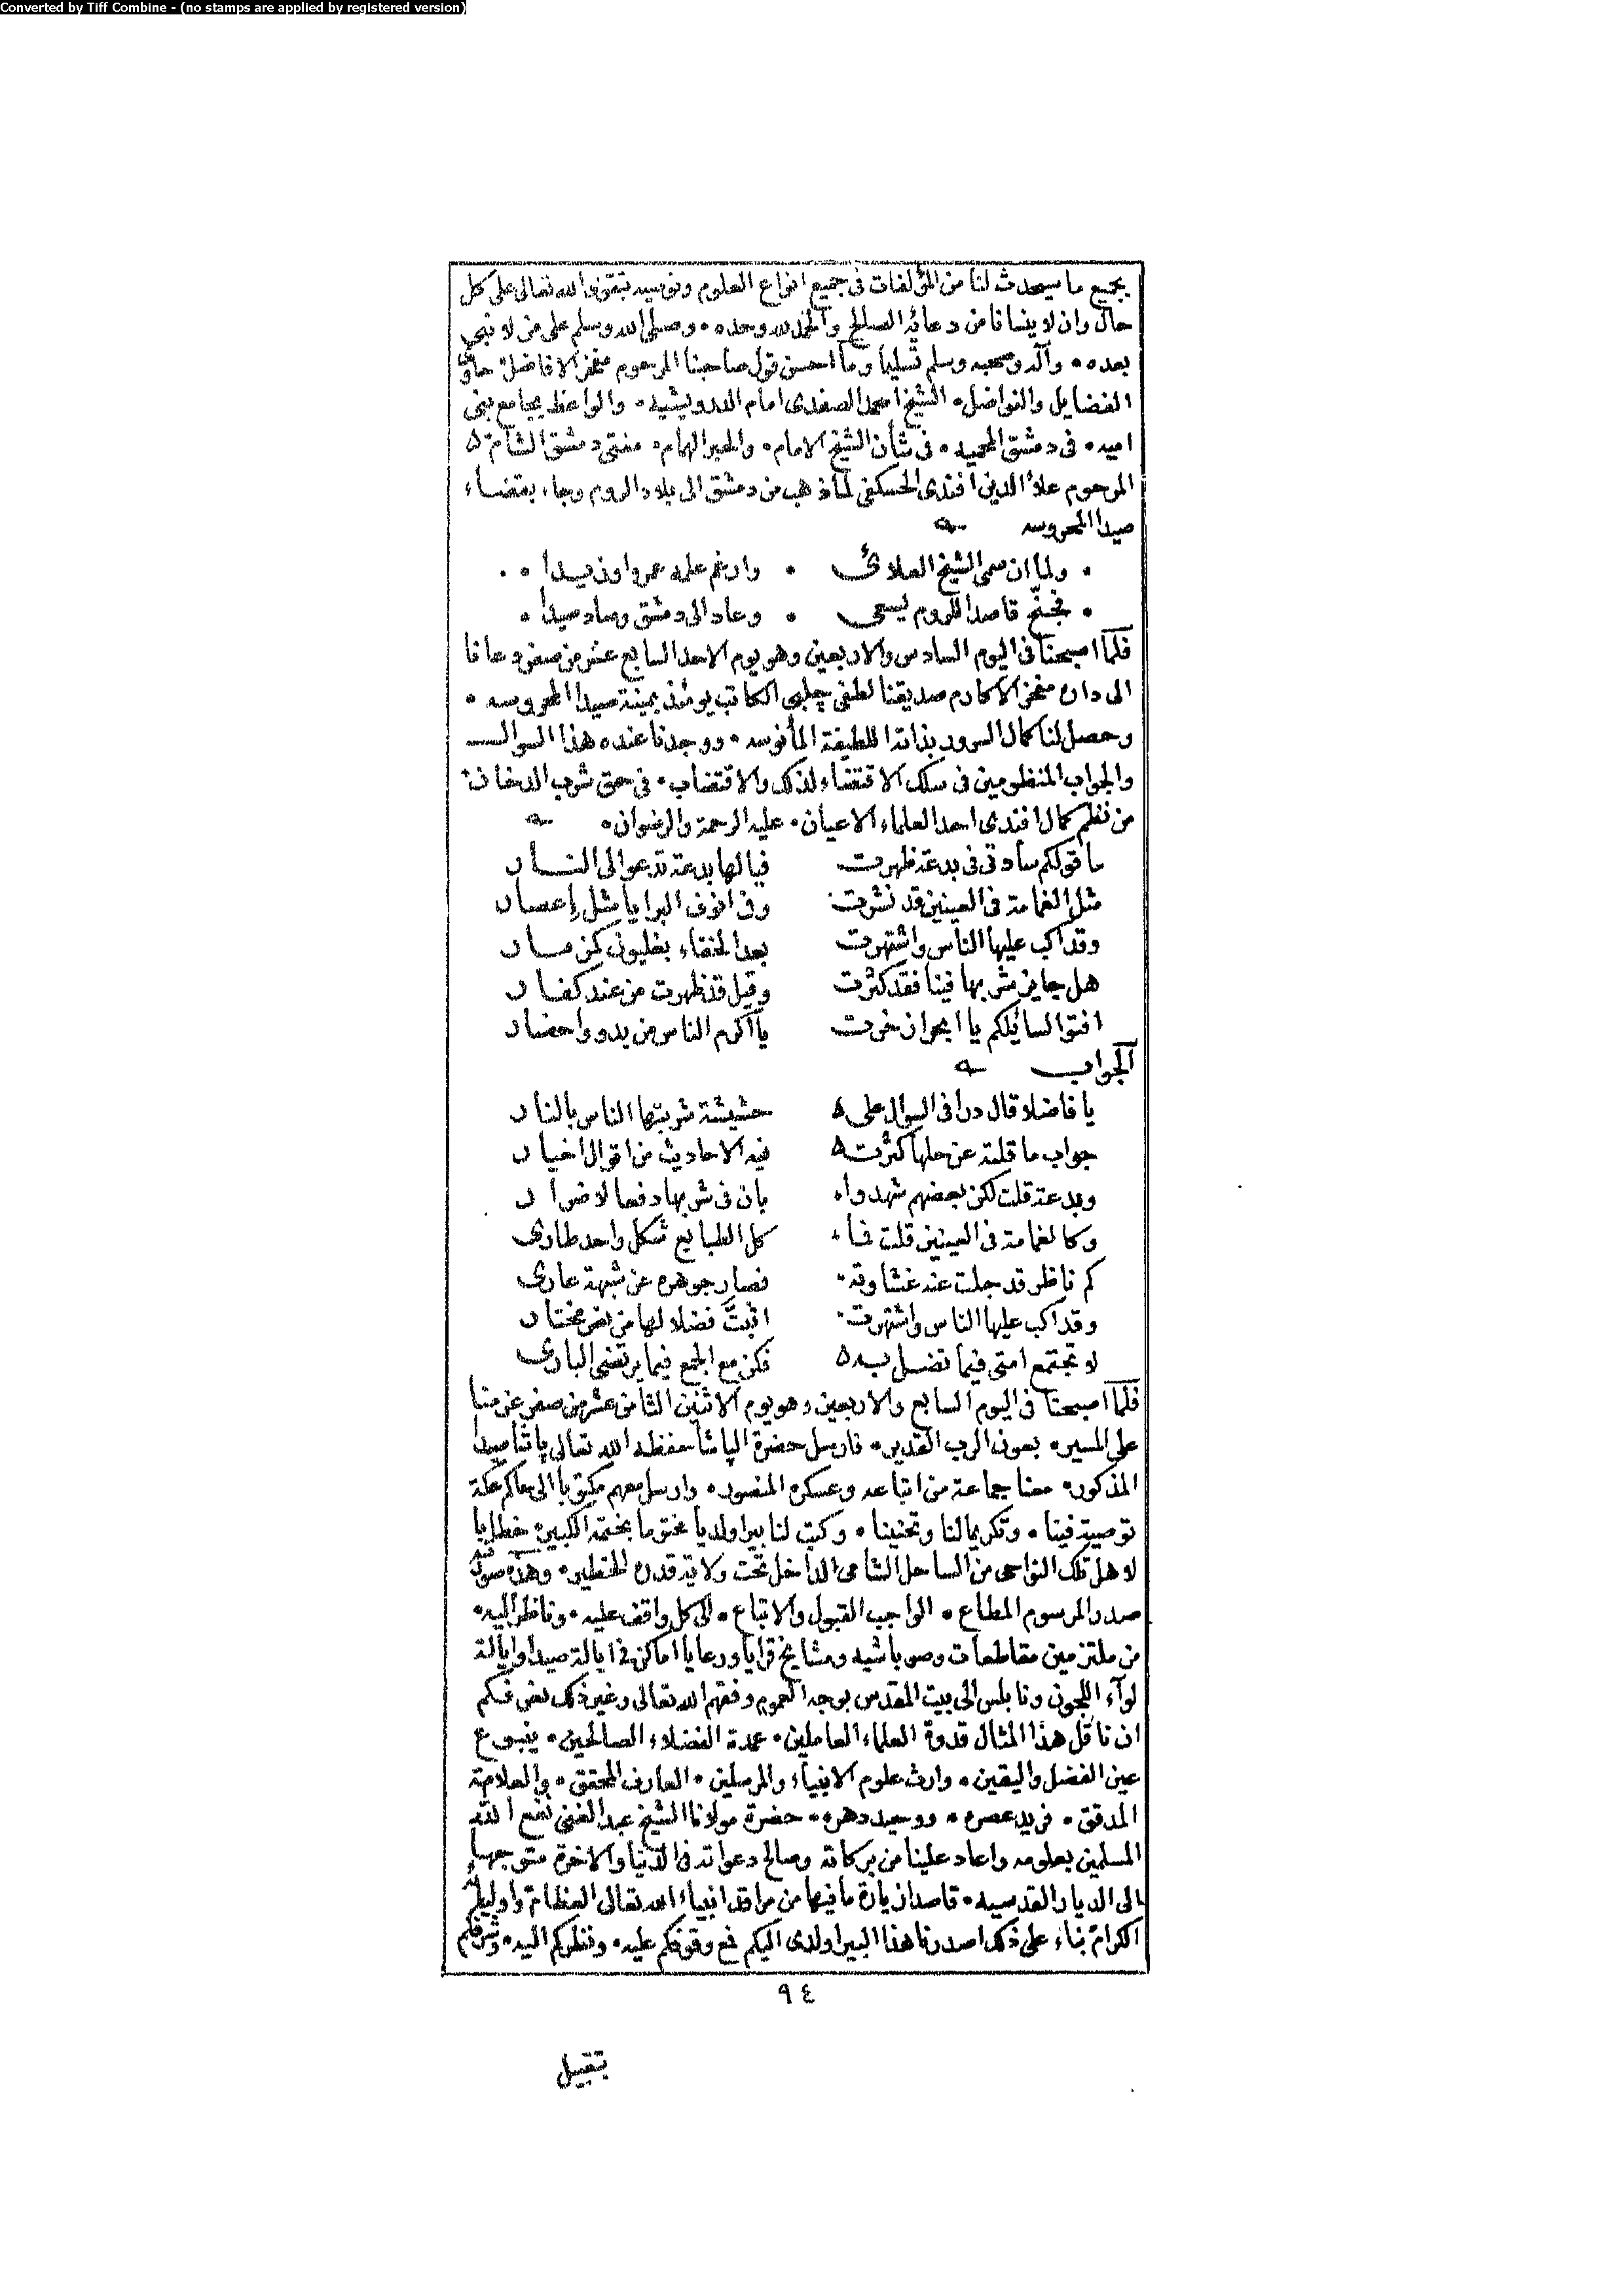 Converted by Tiff Combine - (no stamps are applied by registered version)
بجميع ما سيحدث لنا من المؤلفات فى جميع انواع العلوم ونوصيه بتقوى الله تعالى على كل
حال وان لا ينسانا من دعائه الصالح والحمد لله وحده ۰ وصلى الله وسلم على من لا نبي
بعده ۰ وآله وصحبه وسلم تسليما وما احسن قول صاحبنا المرحوم مفخر الافاضل ۰ حاوى
الفضايل والفواضل ۰ الشيخ محمد الصفدى امام الدرويشيه ۰ والواعظ بجامع بنى
اميه ۰ فى دمشق المحميه ۰ فى شأن الشيخ الامام ۰ والحبر الهمام ۰ مفتى دمشق الشام
المرحوم علاء الدين افندى الحسكفى لما ذهب من دمشق الى بلاد الروم وجاء بقضاء
صيدا المحروسه
۰ ولما ان سمى الشيخ العلائى ۰ وارغم علمه عمرا وزيدا ۰
۰ قاصدا للروم يسعى ۰ وعاد الى دمشق وصاد صيدا ۰
فلما اصبحنا فى اليوم السادس والاربعين وهو يوم الاحد السابع عشر من صفر دعانا
الى داره مفخر الاكارم صديقنا لطفى چلبى الكاتب يومئذ بمينة صيدا المحروسه ۰
وحصل لنا كمال السرور بذاته اللطيفة المأنوسه ۰ ووجدنا عنده هذا السوال
والجواب المنظومين فى سلك الاقتفاء لذلك والاقتضاب ۰ فى حق شرب الدخان
من نظم كمال افندى احد العلماء الاعيان ۰ عليه الرحمة والرضوان ۰
ما قولكم سادتى فى بدعة ظهرت فيالها بدعة تدعو الى النار
مثل الغمامة فى العينين قد نشرت وفى انوف البرايا مثل إعصار
وقد اكب عليها الناس واشتهرت بعد الخفاء بغليون كمزمار
هل جايز شربها فينا فقد كثرت وقيل قد ظهرت من عند كفار
افتوا لسائلكم يا ابحرا زخرت يا اكرم الناس من بدو واحضار
الجواب
يا فاضلا قال درا فى السوال على حشيشة شربتها الناس بالنار
جواب ما قلته عن حلها كثرت فيه الاحاديث من اقوال اخيار
وبدعة قلت لكن بعضهم شهدوا بان فى شربها دفعا لاضرار
وكالغمامة فى العينين قلت فما كل الطبايع شكل واحد طارى
كم ناظر قد جلت عنه غشاوته فصار جوهره عن شبهة عارى
وقد اكب عليها الناس واشتهرت اثبتَّ فضلا لها من نص مختار
لا تجتمع امتى فيما تضل به فكن مع الجمع فيما يرتضى البارى
فلما اصبحنا فى اليوم السابع والاربعين وهو يوم الاثنين الثامن عشر من صفر عزمنا
على المسير ۰ بعون الرب القدير ۰ فارسل حضرة الباشا حفظه الله تعالى باشا صيدا
المذكور ۰ معنا جماعة من اتباعه وعسكره المنصور ۰ وارسل معهم مكتوبا الى حاكم عكة
توصية فينا ۰ وتكريما لنا وتحنينا ۰ وكتب لنا بيراولديا مختوما بختمه الكبير ۰ خطابا
لاهل تلك النواحى من الساحل الشامى الداخل تحت ولاية قدره الخطير ۰ وهذه صورته
صدر المرسوم المطاع ۰ الواجب القبول والاتباع ۰ الى كل واقف عليه ۰ وناظر اليه ۰
من ملتزمين مقاطعات وصوباشيه ومشايخ قرايا ورعايا اماكن فى ايالة صيدا وايالة
لوآء اللجون ونابلس الى بيت المقدس بوجه العموم وفقهم الله تعالى وغير ذلك نعرفكم
ان ناقل هذا المثال قدوة العلماء العاملين ۰ عمدة الفضلاء الصالحين ۰ ينبوع
عين الفضل واليقين ۰ وارث علوم الانبياء والمرسلين ۰ العارف المحقق ۰ والعلامة
المدقق ۰ فريد عصره ۰ ووحيد دهره ۰ حضرة مولانا الشيخ عبد الغنى نفع الله
المسلمين بعلومه واعاد علينا من بركاته وصالح دعواته فى الدنيا والاخرة متوجها
الى الديار القدسيه ۰ قاصدا زيارة ما فيها من مراقد انبياء الله تعالى العظام واوليائه
الكرام بناء على ذلك اصدرنا هذا البيراولدى اليكم فمع وقوفكم عليه ۰ ونظركم اليه ۰ وتشرفكم
٩٤
بتقبيل